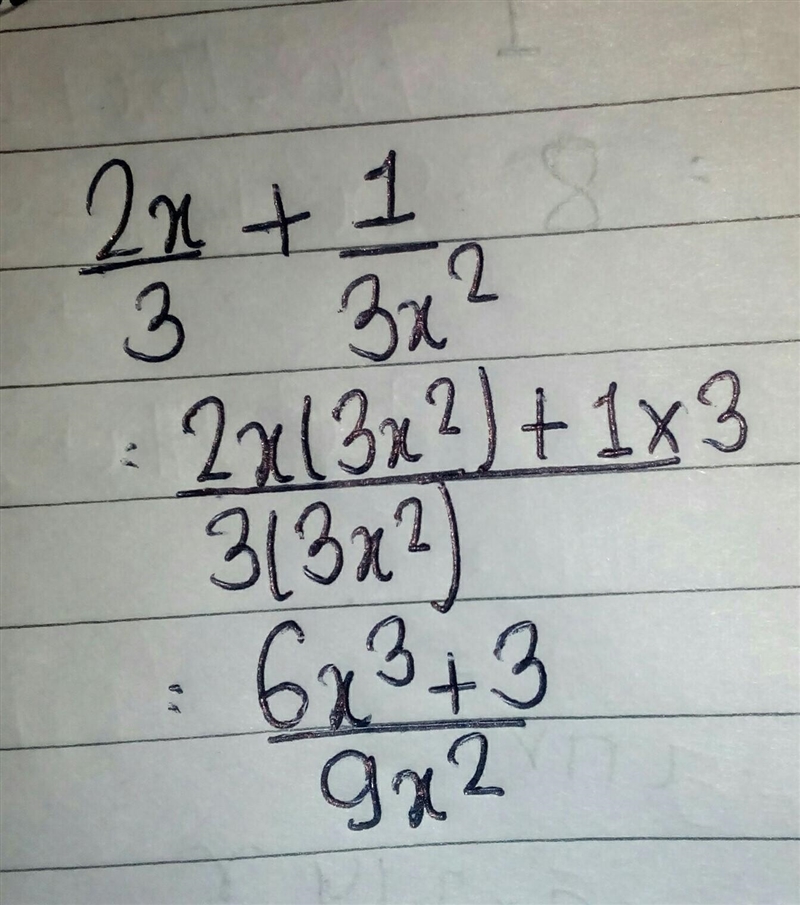 2x/3 + 1/3x²
= 2x(3x²) + 1×3 / 3(3x²)
= 6x³ + 3 / 9x²